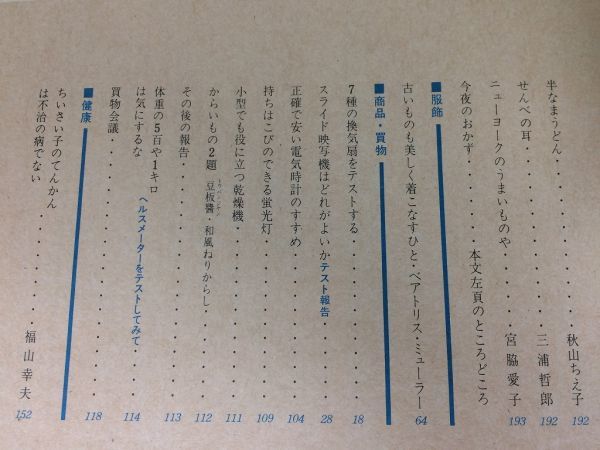 半なまうどん・・・・・・・秋山ちえ子 192
せんべの耳・・・・・・・三浦哲郎 192
ニューヨークのうまいものや・・・・宮脇愛子 193
今夜のおかず・・・・・・本文左頁のところどころ
■服飾
古いものも美しく着こなすひと・ベアトリス・ミューラー 64
■商品・買物
7種の換気扇をテストする・・・・・・・18
スライド映写機はどれがよいか テスト報告・・・28
正確で安い電気時計のすすめ・・・・・・104
持ちはこびのできる蛍光灯・・・・・・109
小型でも役に立つ乾燥機・・・・・・・111
からいもの2題 豆板醬・和風ねりからし・・・112
その後の報告・・・・・・・・・・113
体重の5百や1キロ
は気にするな ヘルスメーターをテストしてみて・・114
買物会議・・・・・・・・・・・118
■健康
ちいさい子のてんかん
は不治の病でない・・・・・・福山幸夫 152